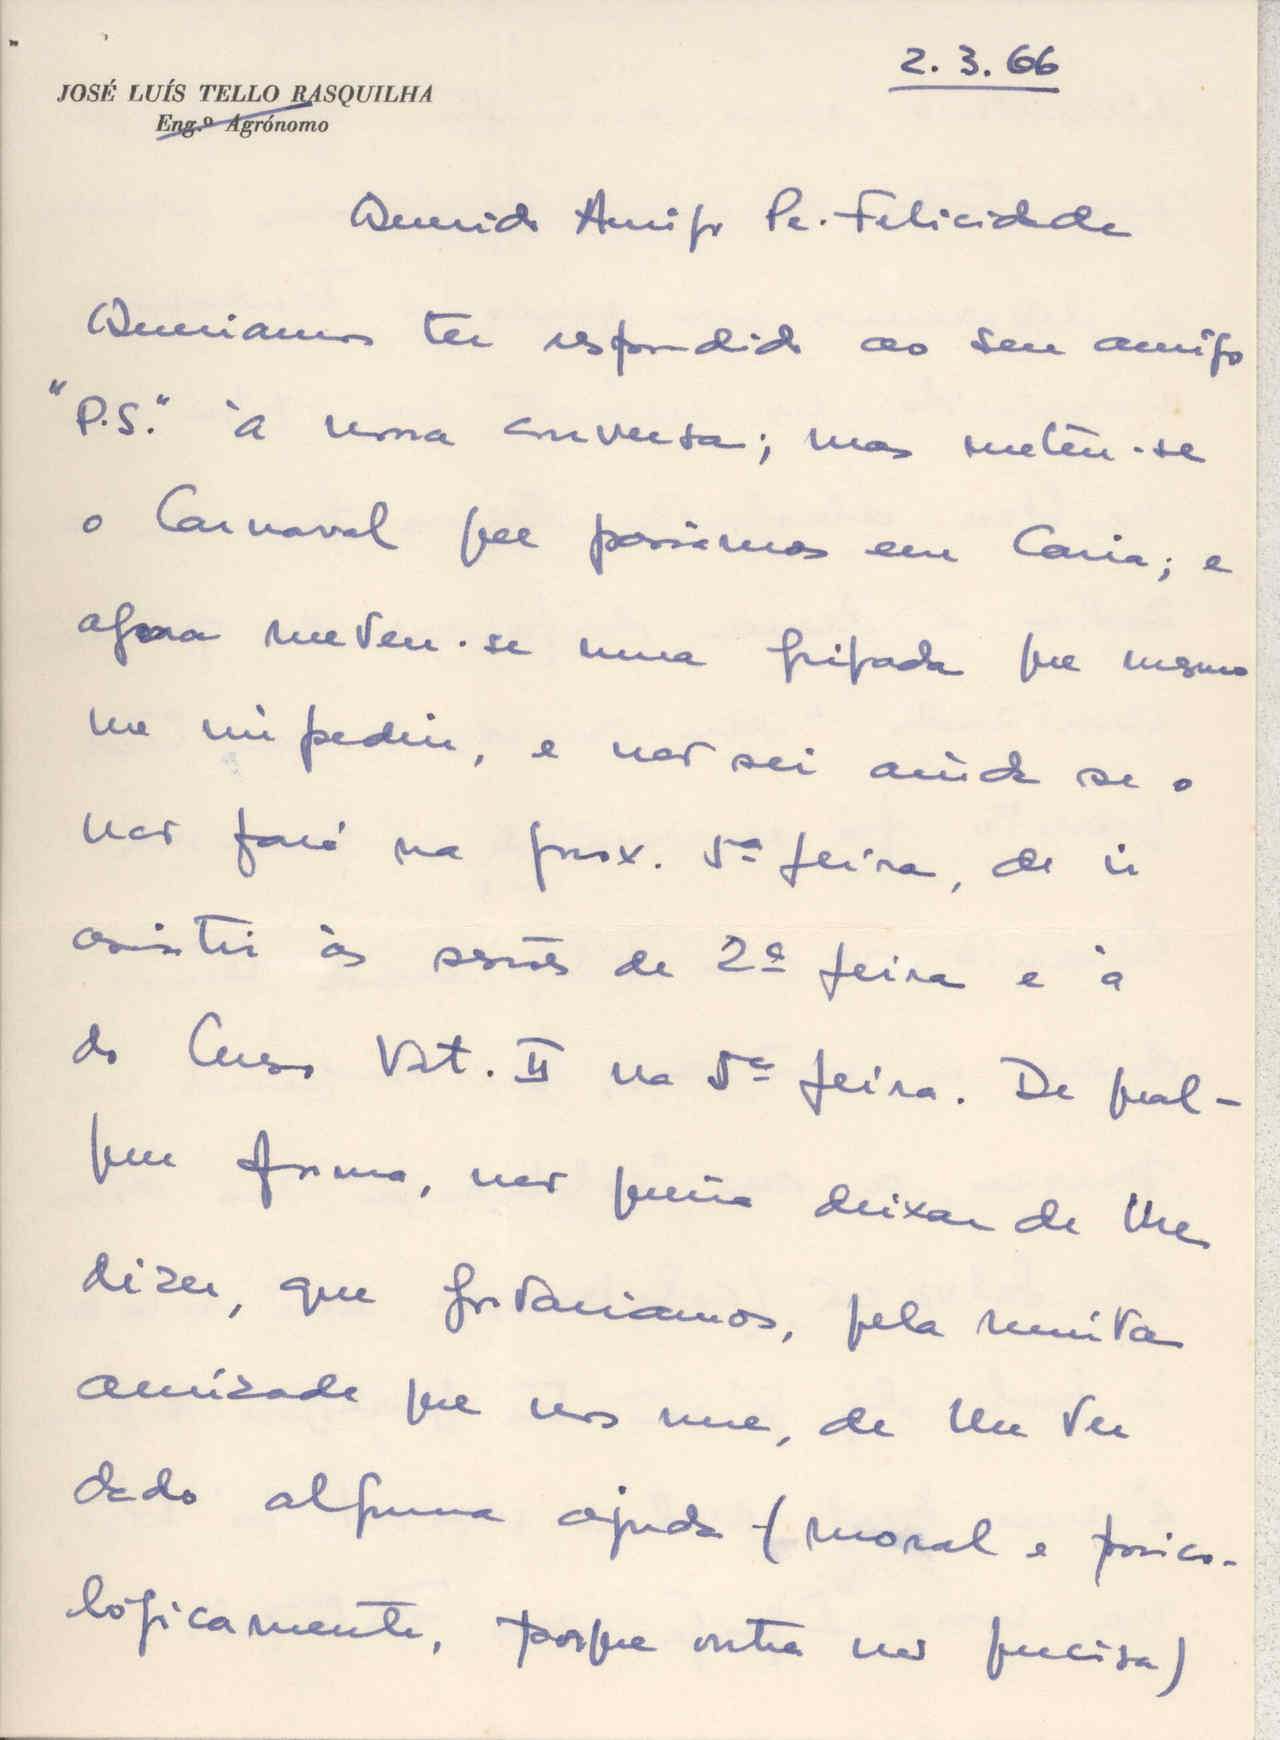 2. 3. 66
JOSÉ LUÍS TELLO RASQUILHA
Eng.º Agrónomo
Querido Amigo Pe. Felicidade
Queriamos ter respondido ao seu amigo
"P.S." à nossa conversa; mas meteu-se
o Carnaval que passámos em Caria; e
agora meteu-se uma gripada que mesmo
me impediu, e não sei ainda se o
não fará na prox. 5ª feira, de ir
assistir às sessões de 2ª feira e à
do Curso Vat. II na 5ª feira. De qual-
quer forma, não queria deixar de lhe
dizer, que gostariamos, pela muita
amizade que nos une, de lhe ter
dado alguma ajuda (moral e psico-
lógicamente, porque outra não precisa)